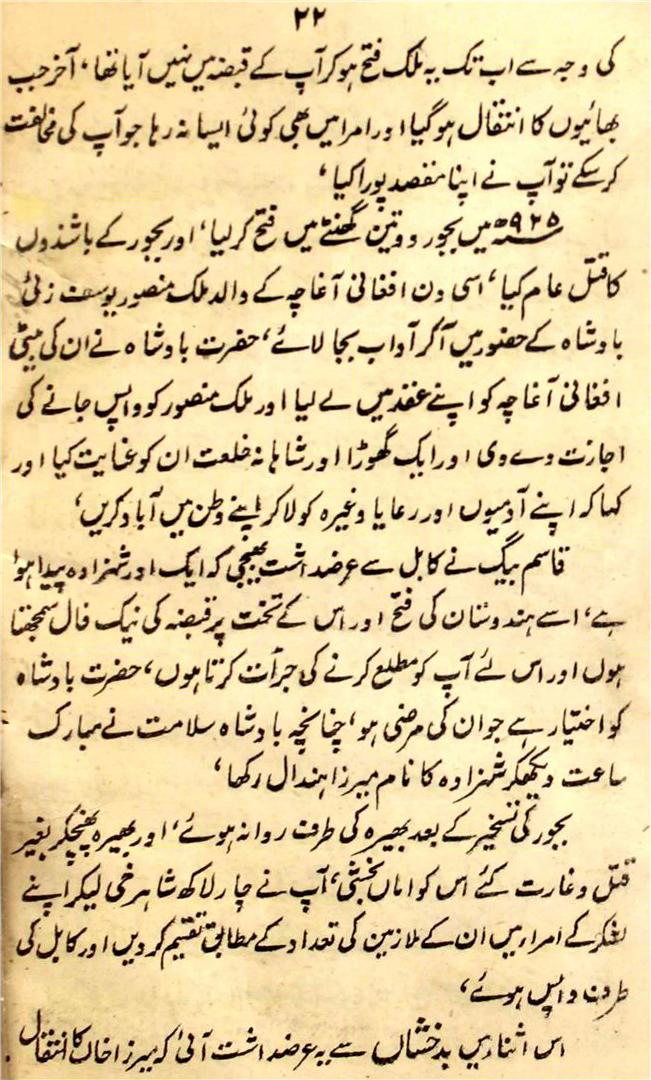 ۲۲
کی وجہ سے اب تک یہ ملک فتح ہوکر آپ کے قبضہ میں نہیں آیا تھا، آخر جب
بھائیوں کا انتقال ہوگیا اور امرا میں بھی کوئی ایسا نہ رہا جو آپ کی مخالفت
کر سکے تو آپ نے اپنا مقصد پورا کیا،
۹۲۵ھ میں بجور دو تین گھنٹے میں فتح کر لیا، اور بجور کے باشندوں
کا قتل عام کیا، اسی دن افغانی آغاچہ کے والد ملک منصور یوسف زئی
بادشاہ کے حضور میں آکر آداب بجا لائے، حضرت بادشاہ نے ان کی بیٹی
افغانی آغاچہ کو اپنے عقد میں لے لیا اور ملک منصور کو واپس جانے کی
اجازت دے دی اور ایک گھوڑا اور شاہانہ خلعت ان کو عنایت کیا اور
کہا کہ اپنے آدمیوں اور رعایا وغیرہ کو لاکر اپنے وطن میں آباد کریں،
قاسم بیگ نے کابل سے عرضداشت بھیجی کہ ایک اور شہزادہ پیدا ہوا
ہے، اسے ہندوستان کی فتح اور اس کے تخت پر قبضہ کی نیک فال سمجھتا
ہوں اور اس لئے آپ کو مطلع کرنے کی جرأت کرتا ہوں، حضرت بادشاہ
کو اختیار ہے جو ان کی مرضی ہو، چنانچہ بادشاہ سلامت نے مبارک
ساعت دیکھکر شہزادہ کا نام میرزا ہندال رکھا،
بجور کی تسخیر کے بعد بھیرہ کی طرف روانہ ہوئے، اور بھیرہ پہنچکر بغیر
قتل وغارت کئے اس کو اماں بخشی، آپ نے چار لاکھ شاہرخی لیکر اپنے
لشکر کے امراء میں ان کے ملازمین کی تعداد کے مطابق تقسیم کر دیں اور کابل کی
طرف واپس ہوئے،
اس اثناء میں بدخشاں سے یہ عرضداشت آئی کہ میرزا خاں کا انتقال